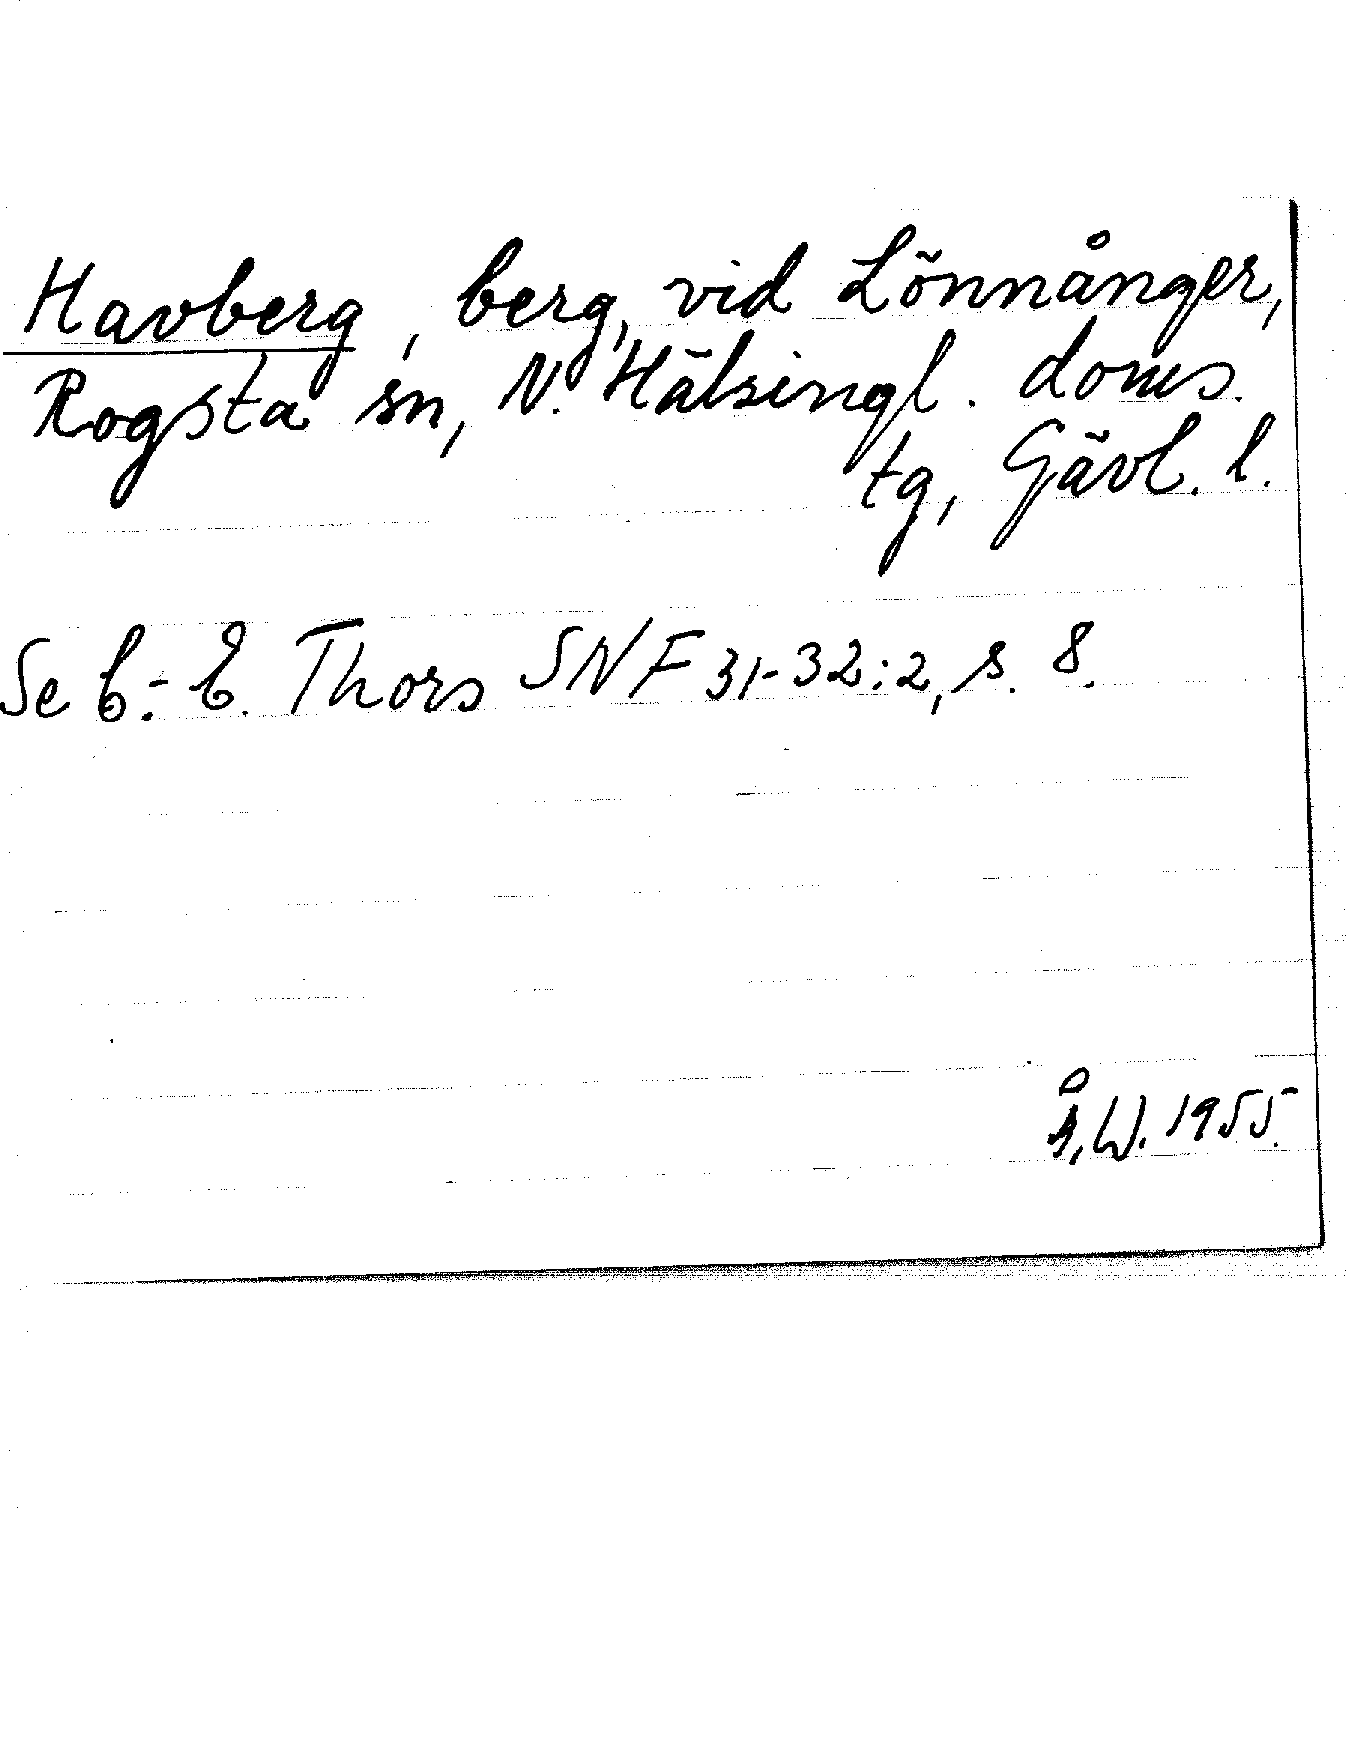 Havberg, berg, vid Lönnånger,
Rogsta sn, N. Hälsingl. doms.
tg, Gävl. l.
Se C.-E. Thors SNF 31-32:2, s. 8.
Å.W. 1955.